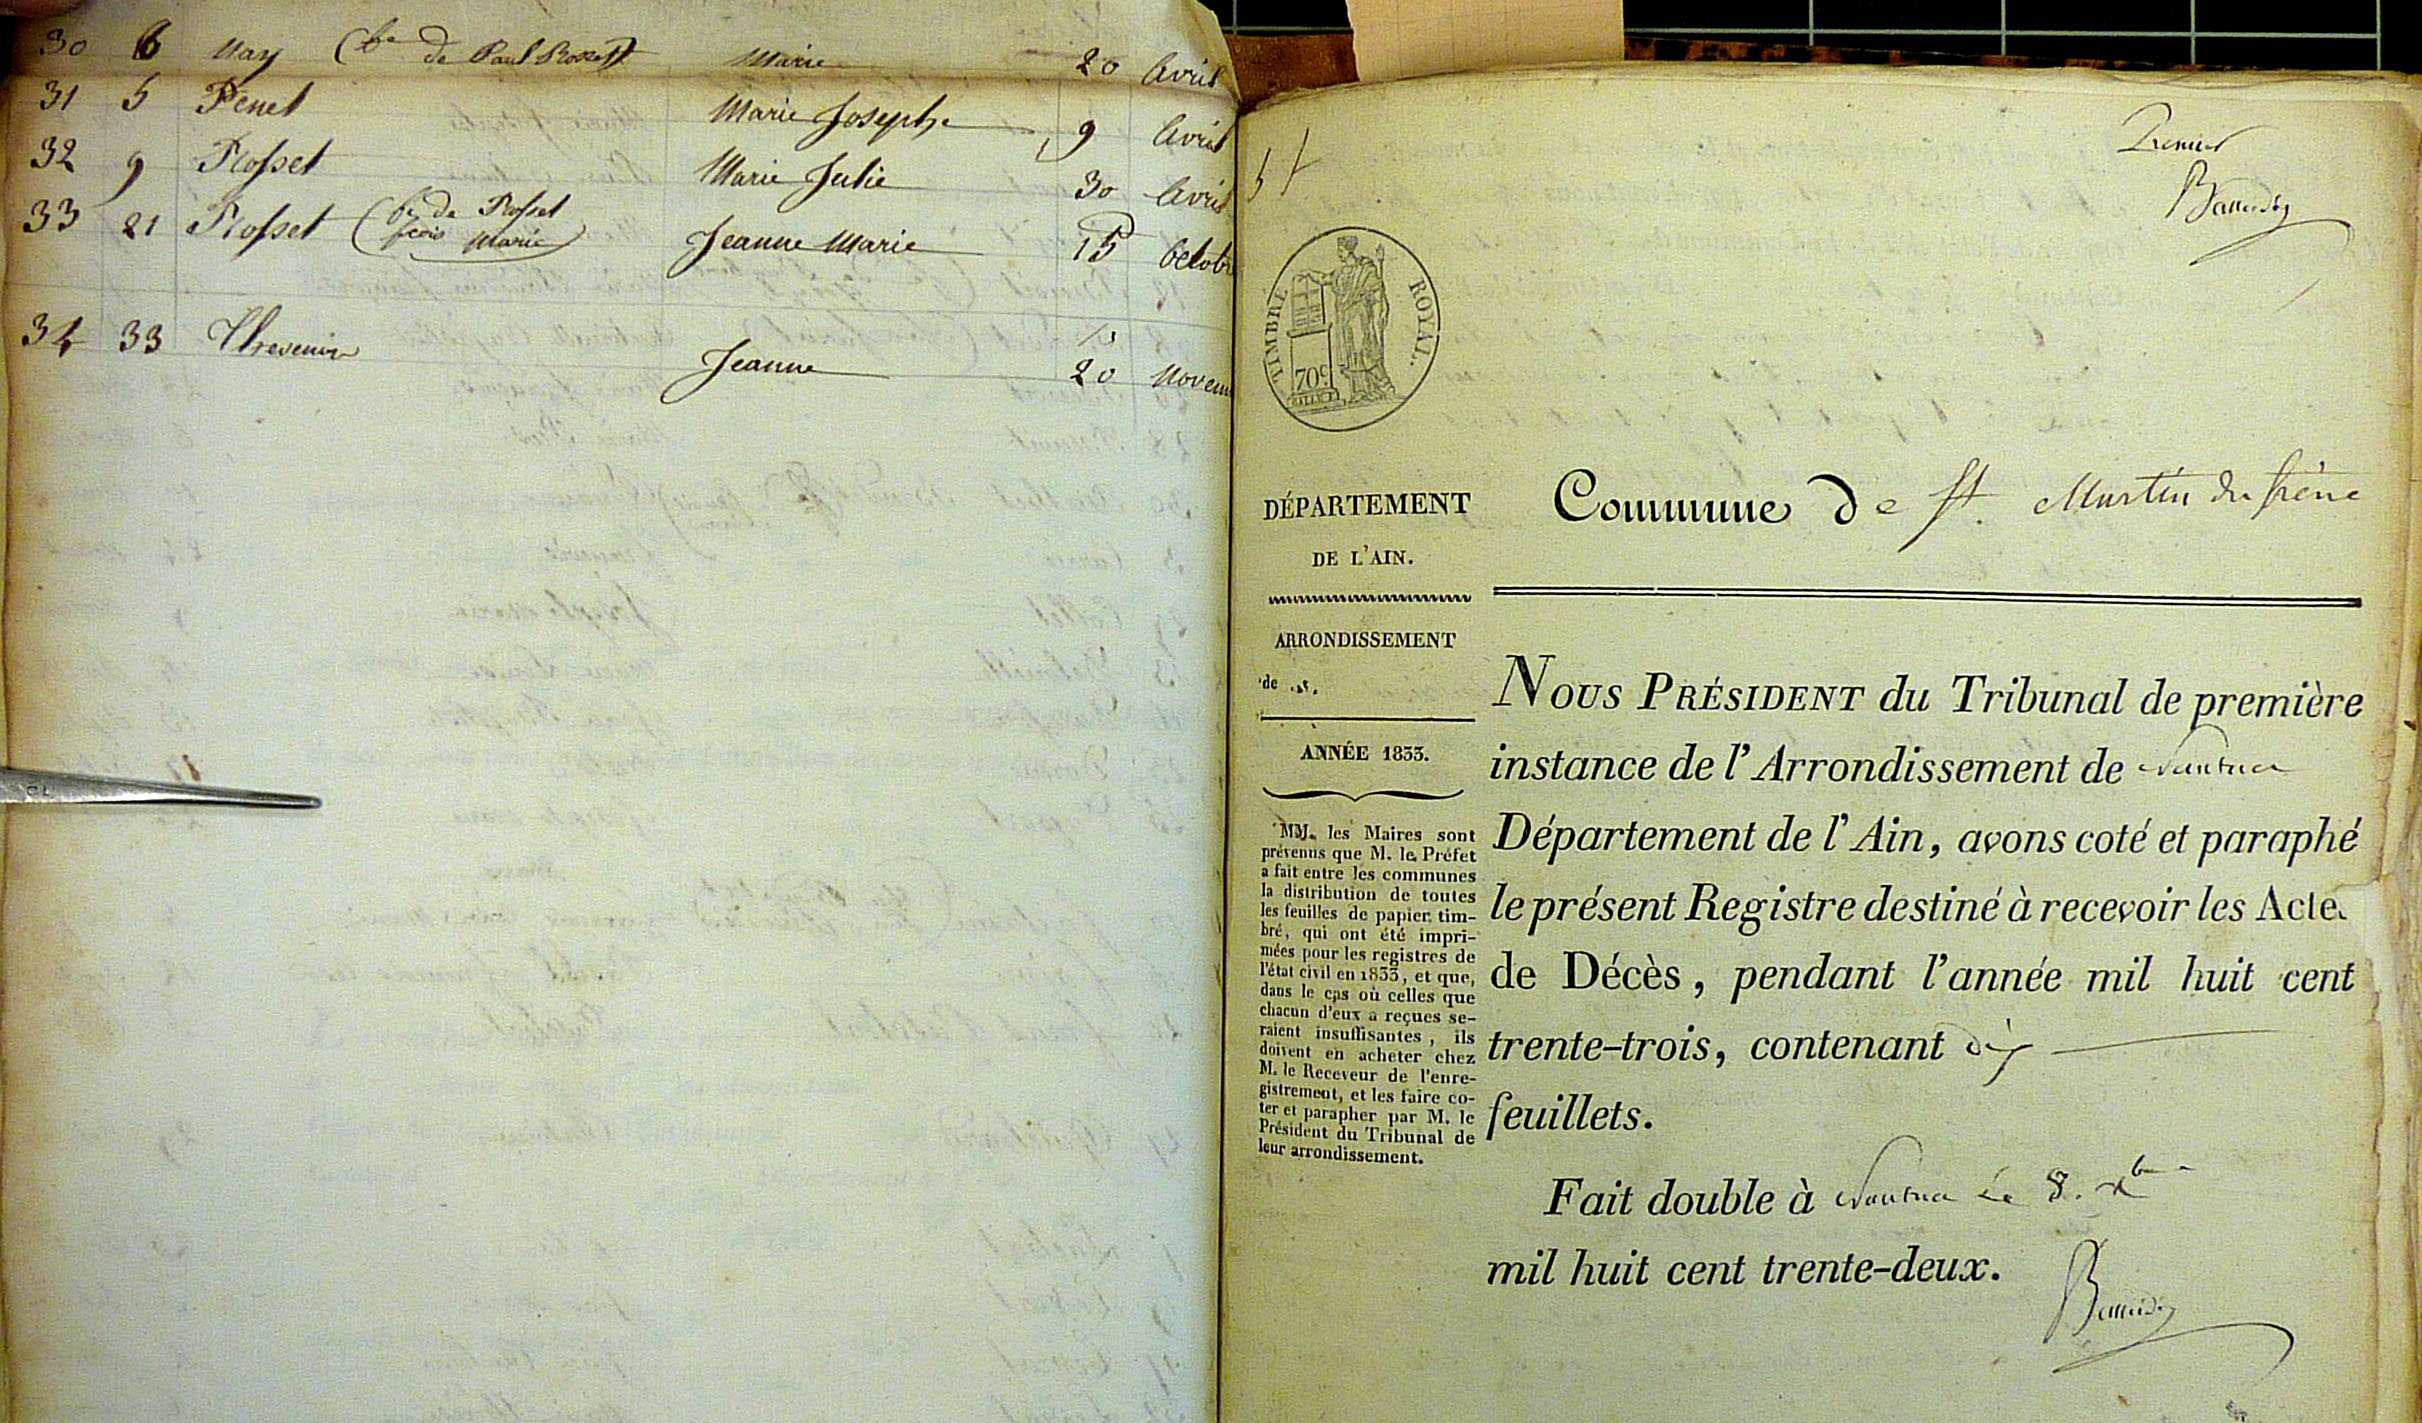 30 6 May (be de Paul Rosset) Marie 20 Avril
31 5 Penet Marie Josephe 9 Avril
32 9 Rosset Marie Julie 30 Avril
33 21 Rosset (be de Rosset fcois Marie) Jeanne Marie 15 Octobre
34 33 Thevenin Jeanne 20 Novem
Premier
TIMBRE ROYAL.
70c
DÉPARTEMENT
DE L'AIN.
ARRONDISSEMENT
de
ANNÉE 1833.
MM. les Maires sont
prévenus que M. le Préfet
a fait entre les communes
la distribution de toutes
les feuilles de papier tim-
bré, qui ont été impri-
mées pour les registres de
l'état civil en 1833, et que,
dans le cas où celles que
chacun d'eux a reçues se-
raient insuffisantes, ils
doivent en acheter chez
M. le Receveur de l'enre-
gistrement, et les faire co-
ter et parapher par M. le
Président du Tribunal de
leur arrondissement.
Commune de St. Martin du frêne
NOUS PRÉSIDENT du Tribunal de première
instance de l'Arrondissement de Nantua
Département de l'Ain, avons coté et paraphé
le présent Registre destiné à recevoir les Actes
de Décès, pendant l'année mil huit cent
trente-trois, contenant dix
feuillets.
Fait double à Nantua le 8. Xbre
mil huit cent trente-deux.